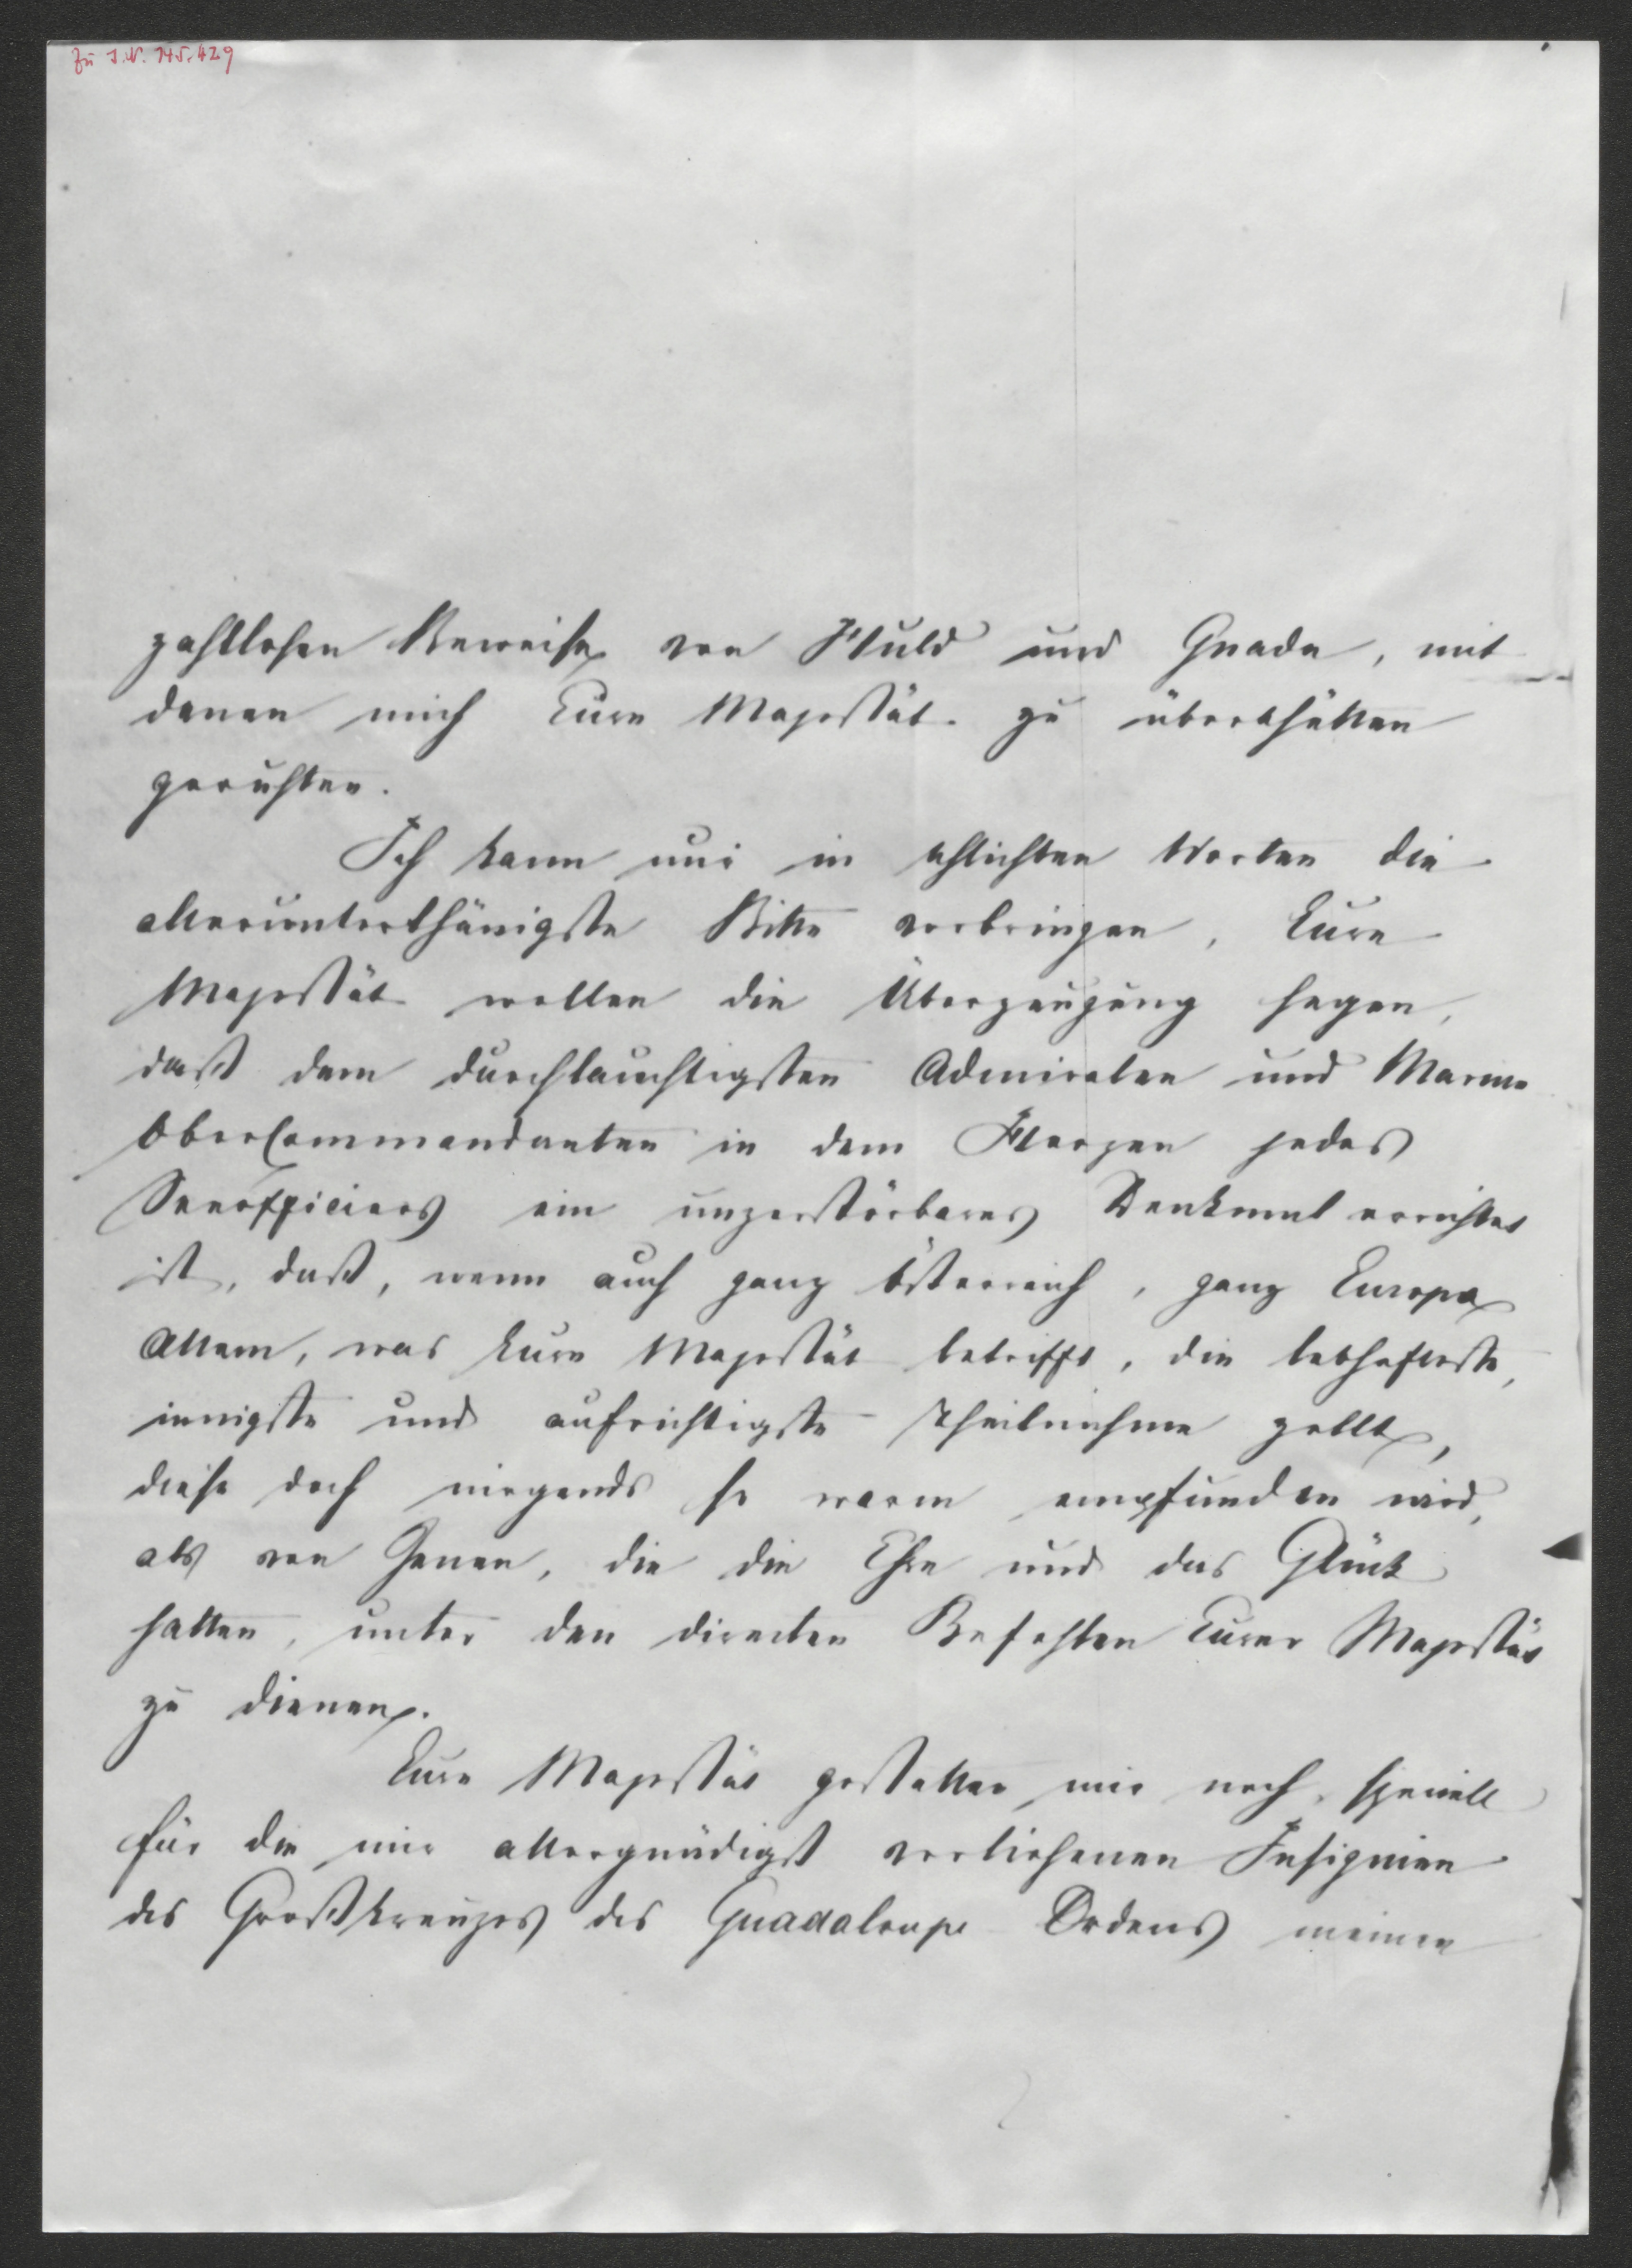 Zu I.N. 145.429
zahllosen Beweise von Huld und Gnade, mit
denen mich Eure Majestät zu überhäufen
geruhten.
Ich kann nur in schlichten Worten die
allerunterthänigste Bitte vorbringen, Eure
Majestät wollen die Überzeugung hegen,
daß dem durchlauchtigsten Admiralen und Marine
Obercommandanten in dem Herzen jedes
Seeofficiers ein unzerstörbares Denkmal errichtet
ist, daß, wenn auch ganz Österreich, ganz Europa
Allem, was Eure Majestät betrifft, die lebhafteste,
innigste und aufrichtigste Theilnahme zollt,
diese doch nirgends so warm empfunden wird,
als von Jenen, die die Ehre und das Glück
hatten, unter den directen Befehlen Eurer Majestät
zu dienen.
Eure Majestät gestatten mir noch, speciell
für die mir allergnädigst verliehenen Insignien
des Großkreuzes des Guadaloupe Ordens meinen